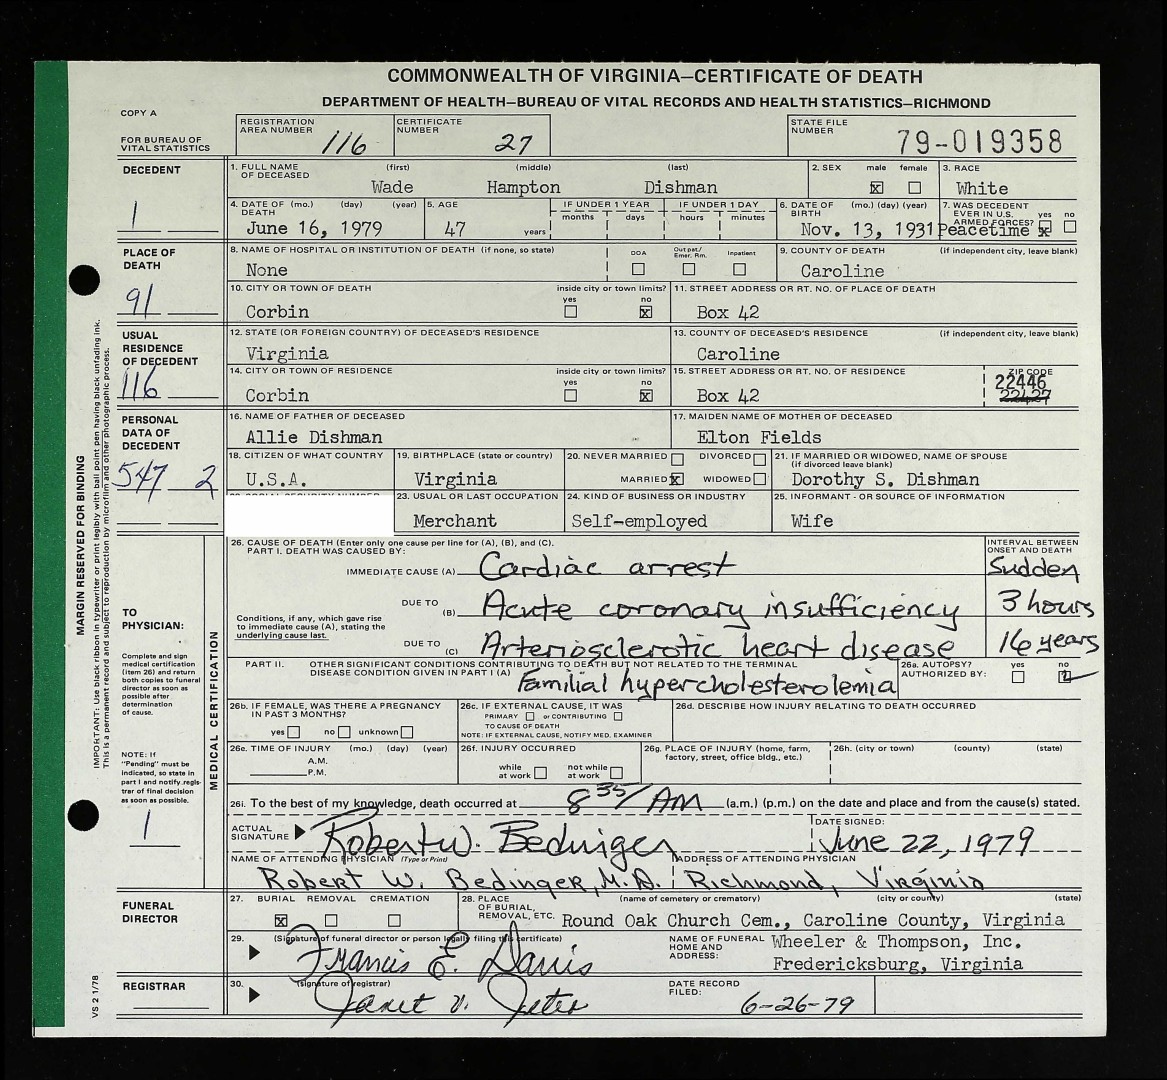 COMMONWEALTH OF VIRGINIA—CERTIFICATE OF DEATH
DEPARTMENT OF HEALTH—BUREAU OF VITAL RECORDS AND HEALTH STATISTICS—RICHMOND
COPY A
FOR BUREAU OF VITAL STATISTICS
REGISTRATION AREA NUMBER 116
CERTIFICATE NUMBER 27
STATE FILE NUMBER 79-019358
DECEDENT
1
1. FULL NAME OF DECEASED (first) (middle) (last)
Wade Hampton Dishman
2. SEX male ☒ female ☐
3. RACE
White
4. DATE OF DEATH (mo.) (day) (year)
June 16, 1979
5. AGE
47 years
IF UNDER 1 YEAR months days
IF UNDER 1 DAY hours minutes
6. DATE OF BIRTH (mo.) (day) (year)
Nov. 13, 1931
7. WAS DECEDENT EVER IN U.S. ARMED FORCES? yes ☒ no ☐
Peacetime
PLACE OF DEATH
91
8. NAME OF HOSPITAL OR INSTITUTION OF DEATH (if none, so state)
None
DOA ☐ Out pat./ Emer. Rm. ☐ Inpatient ☐
9. COUNTY OF DEATH (if independent city, leave blank)
Caroline
10. CITY OR TOWN OF DEATH inside city or town limits? yes ☐ no ☒
Corbin
11. STREET ADDRESS OR RT. NO. OF PLACE OF DEATH
Box 42
USUAL RESIDENCE OF DECEDENT
116
12. STATE (OR FOREIGN COUNTRY) OF DECEASED'S RESIDENCE
Virginia
13. COUNTY OF DECEASED'S RESIDENCE (if independent city, leave blank)
Caroline
14. CITY OR TOWN OF RESIDENCE inside city or town limits? yes ☐ no ☒
Corbin
15. STREET ADDRESS OR RT. NO. OF RESIDENCE
Box 42
ZIP CODE
22446
22427
PERSONAL DATA OF DECEDENT
547 2
16. NAME OF FATHER OF DECEASED
Allie Dishman
17. MAIDEN NAME OF MOTHER OF DECEASED
Elton Fields
18. CITIZEN OF WHAT COUNTRY
U.S.A.
19. BIRTHPLACE (state or country)
Virginia
20. NEVER MARRIED ☐ DIVORCED ☐
MARRIED ☒ WIDOWED ☐
21. IF MARRIED OR WIDOWED, NAME OF SPOUSE (if divorced leave blank)
Dorothy S. Dishman
23. USUAL OR LAST OCCUPATION
Merchant
24. KIND OF BUSINESS OR INDUSTRY
Self-employed
25. INFORMANT - OR SOURCE OF INFORMATION
Wife
TO PHYSICIAN:
Complete and sign medical certification (item 26) and return both copies to funeral director as soon as possible after determination of cause.
NOTE: If "Pending" must be indicated, so state in part I and notify registrar of final decision as soon as possible.
1
MEDICAL CERTIFICATION
26. CAUSE OF DEATH (Enter only one cause per line for (A), (B), and (C).
PART I. DEATH WAS CAUSED BY:
INTERVAL BETWEEN ONSET AND DEATH
IMMEDIATE CAUSE (A) Cardiac arrest Sudden
DUE TO (B) Acute coronary insufficiency 3 hours
Conditions, if any, which gave rise to immediate cause (A), stating the underlying cause last.
DUE TO (C) Arteriosclerotic heart disease 16 years
PART II. OTHER SIGNIFICANT CONDITIONS CONTRIBUTING TO DEATH BUT NOT RELATED TO THE TERMINAL DISEASE CONDITION GIVEN IN PART I (A)
Familial hypercholesterolemia
26a. AUTOPSY? AUTHORIZED BY: yes ☐ no ☑
26b. IF FEMALE, WAS THERE A PREGNANCY IN PAST 3 MONTHS? yes ☐ no ☐ unknown ☐
26c. IF EXTERNAL CAUSE, IT WAS PRIMARY ☐ or CONTRIBUTING ☐ TO CAUSE OF DEATH
NOTE: IF EXTERNAL CAUSE, NOTIFY MED. EXAMINER
26d. DESCRIBE HOW INJURY RELATING TO DEATH OCCURRED
26e. TIME OF INJURY (mo.) (day) (year) A.M. P.M.
26f. INJURY OCCURRED while at work ☐ not while at work ☐
26g. PLACE OF INJURY (home, farm, factory, street, office bldg., etc.)
26h. (city or town) (county) (state)
26i. To the best of my knowledge, death occurred at 8 35/ AM (a.m.) (p.m.) on the date and place and from the cause(s) stated.
ACTUAL SIGNATURE Robert W. Bedinger
DATE SIGNED: June 22, 1979
NAME OF ATTENDING PHYSICIAN (Type or Print)
Robert W. Bedinger, M.D.
ADDRESS OF ATTENDING PHYSICIAN
Richmond, Virginia
FUNERAL DIRECTOR
27. BURIAL ☒ REMOVAL ☐ CREMATION ☐
28. PLACE OF BURIAL, REMOVAL, ETC. (name of cemetery or crematory) (city or county) (state)
Round Oak Church Cem., Caroline County, Virginia
29. (Signature of funeral director or person legally filing this certificate)
Francis E. Davis
NAME OF FUNERAL HOME AND ADDRESS:
Wheeler & Thompson, Inc.
Fredericksburg, Virginia
REGISTRAR
30. (signature of registrar)
Janet V. Jeter
DATE RECORD FILED: 6-26-79
VS 2 1/78
MARGIN RESERVED FOR BINDING
IMPORTANT: Use black ribbon in typewriter or print legibly with ball point pen having black unfading ink.
This is a permanent record and subject to reproduction by microfilm and other photographic process.